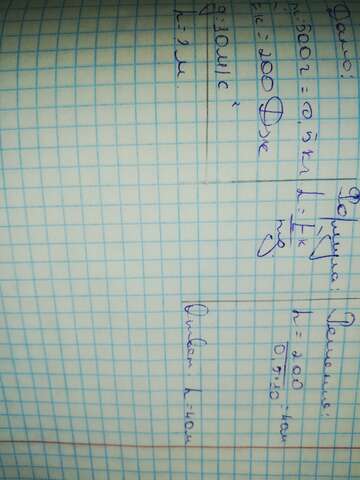 Дано:
m=500г=0,5кг
Eк=200Дж
g=10м/с²
h=?м.
Формула:
h=Eк/mg
Решение:
h=200/0,5·10=40м
Ответ: h=40м